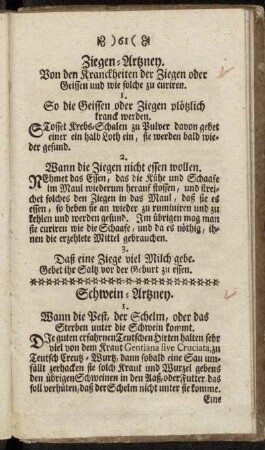 )61(
Ziegen-Artzney.
Von den Kranckheiten der Ziegen oder
Geissen und wie solche zu curiren.
1.
So die Geissen oder Ziegen plötzlich
kranck werden.
STosset Krebs-Schalen zu Pulver davon gebet
einer ein halb Loth ein, sie werden bald wie-
der gesund.
2.
Wann die Ziegen nicht essen wollen.
NEhmet das Essen, das die Kühe und Schaafe
im Maul wiederum herauf stossen, und strei-
chet solches den Ziegen in das Maul, daß sie es
essen, so heben sie an wieder zu ruminiren und zu
kehlen und werden gesund. Im übrigen mag man
sie curiren wie die Schaafe, und da es nöthig, ih-
nen die erzehlete Mittel gebrauchen.
3.
Daß eine Ziege viel Milch gebe.
Gebet ihr Saltz vor der Geburt zu essen.
Schwein-Artzney.
1.
Wann die Pest, der Schelm, oder das
Sterben unter die Schwein kommt.
DJe guten erfahrnen Teutschen Hirten halten sehr
viel von dem Kraut Gentiana sive Cruciata, zu
Teutsch Creutz-Wurtz, dann sobald eine Sau um-
fällt zerhacken sie solch Kraut und Wurzel gebens
den übrigen Schweinen in den Aaß, oder Futter das
soll verhüten, daß der Schelm nicht unter sie komme.
Eine